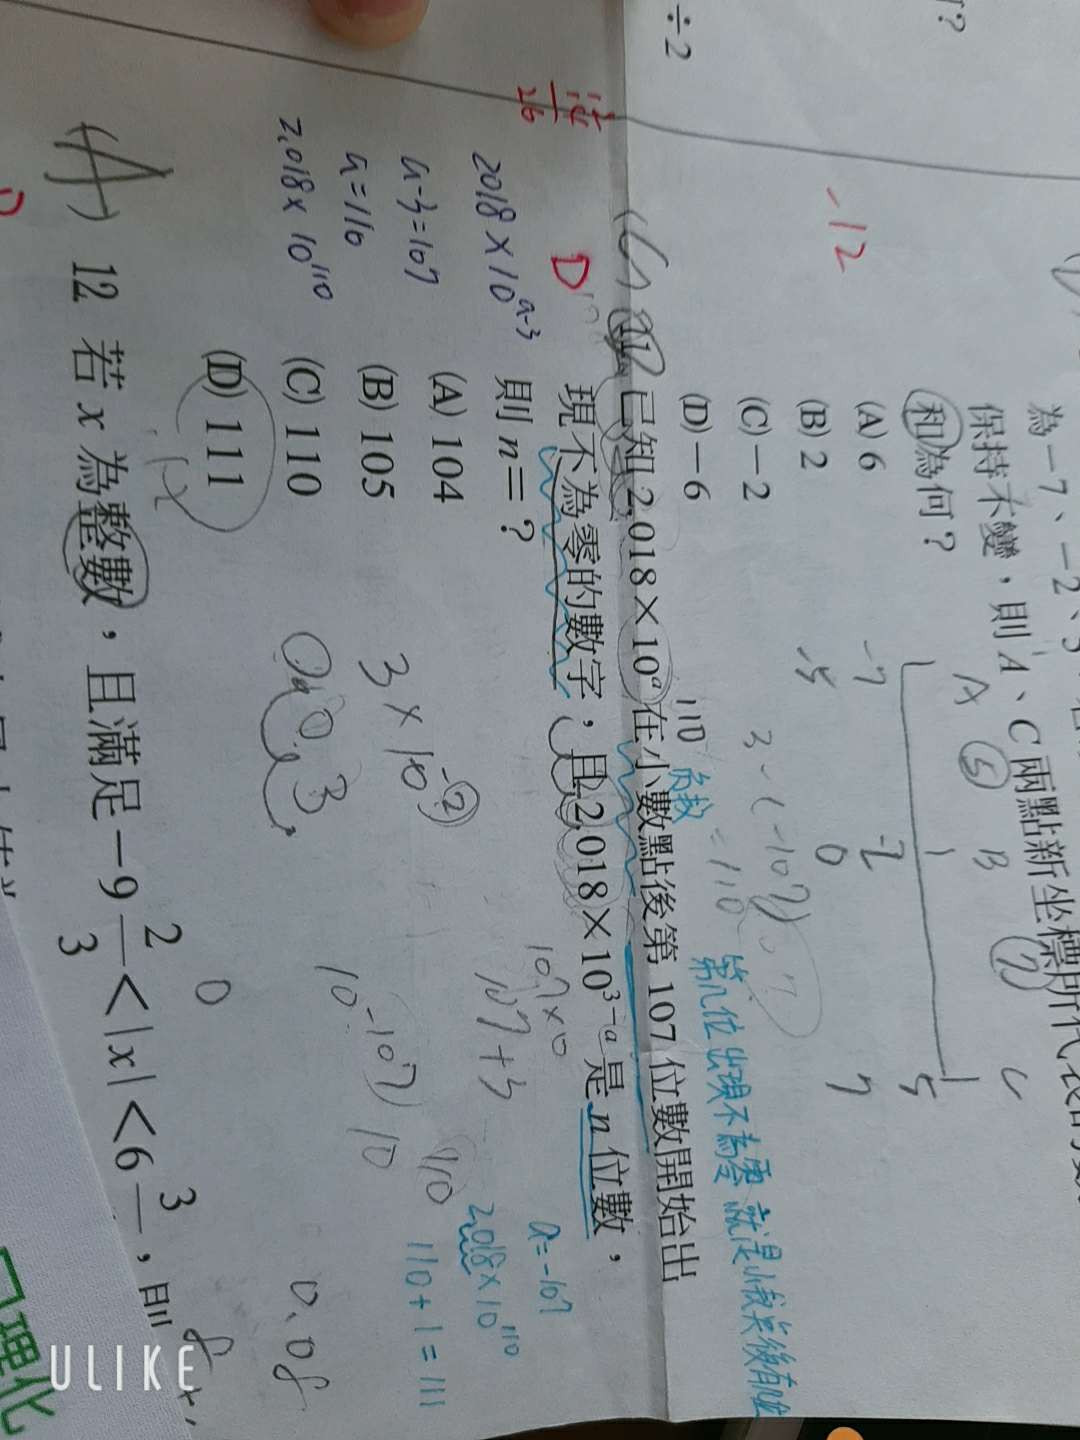 ÷2
為－7、－2、5
保持不變，則 A、C 兩點新坐標所代表的數
和為何？
(A) 6
(B) 2
(C)－2
(D)－6
-12
A 5 B 7 C
-7 -2 5
-5 0 7
已知 2.018×10ᵃ 在小數點後第 107 位數開始出
現不為零的數字，且 2.018×10³⁻ᵃ 是 n 位數，
則 n＝？
(A) 104
(B) 105
(C) 110
(D) 111
D
2018×10ᵃ⁻³
a-3=107
a=110
2.018×10¹¹⁰
110
負數
3-(-107)
=110
第幾位出現不為零就是小數點後有幾位
3×10⁻²
107+3
10⁻¹⁰⁷
110
a=-107
2.018×10¹¹⁰
110+1=111
0.08
(A) 12 若 x 為整數，且滿足－9 2/3＜|x|＜6 3/
理化
ULIKE